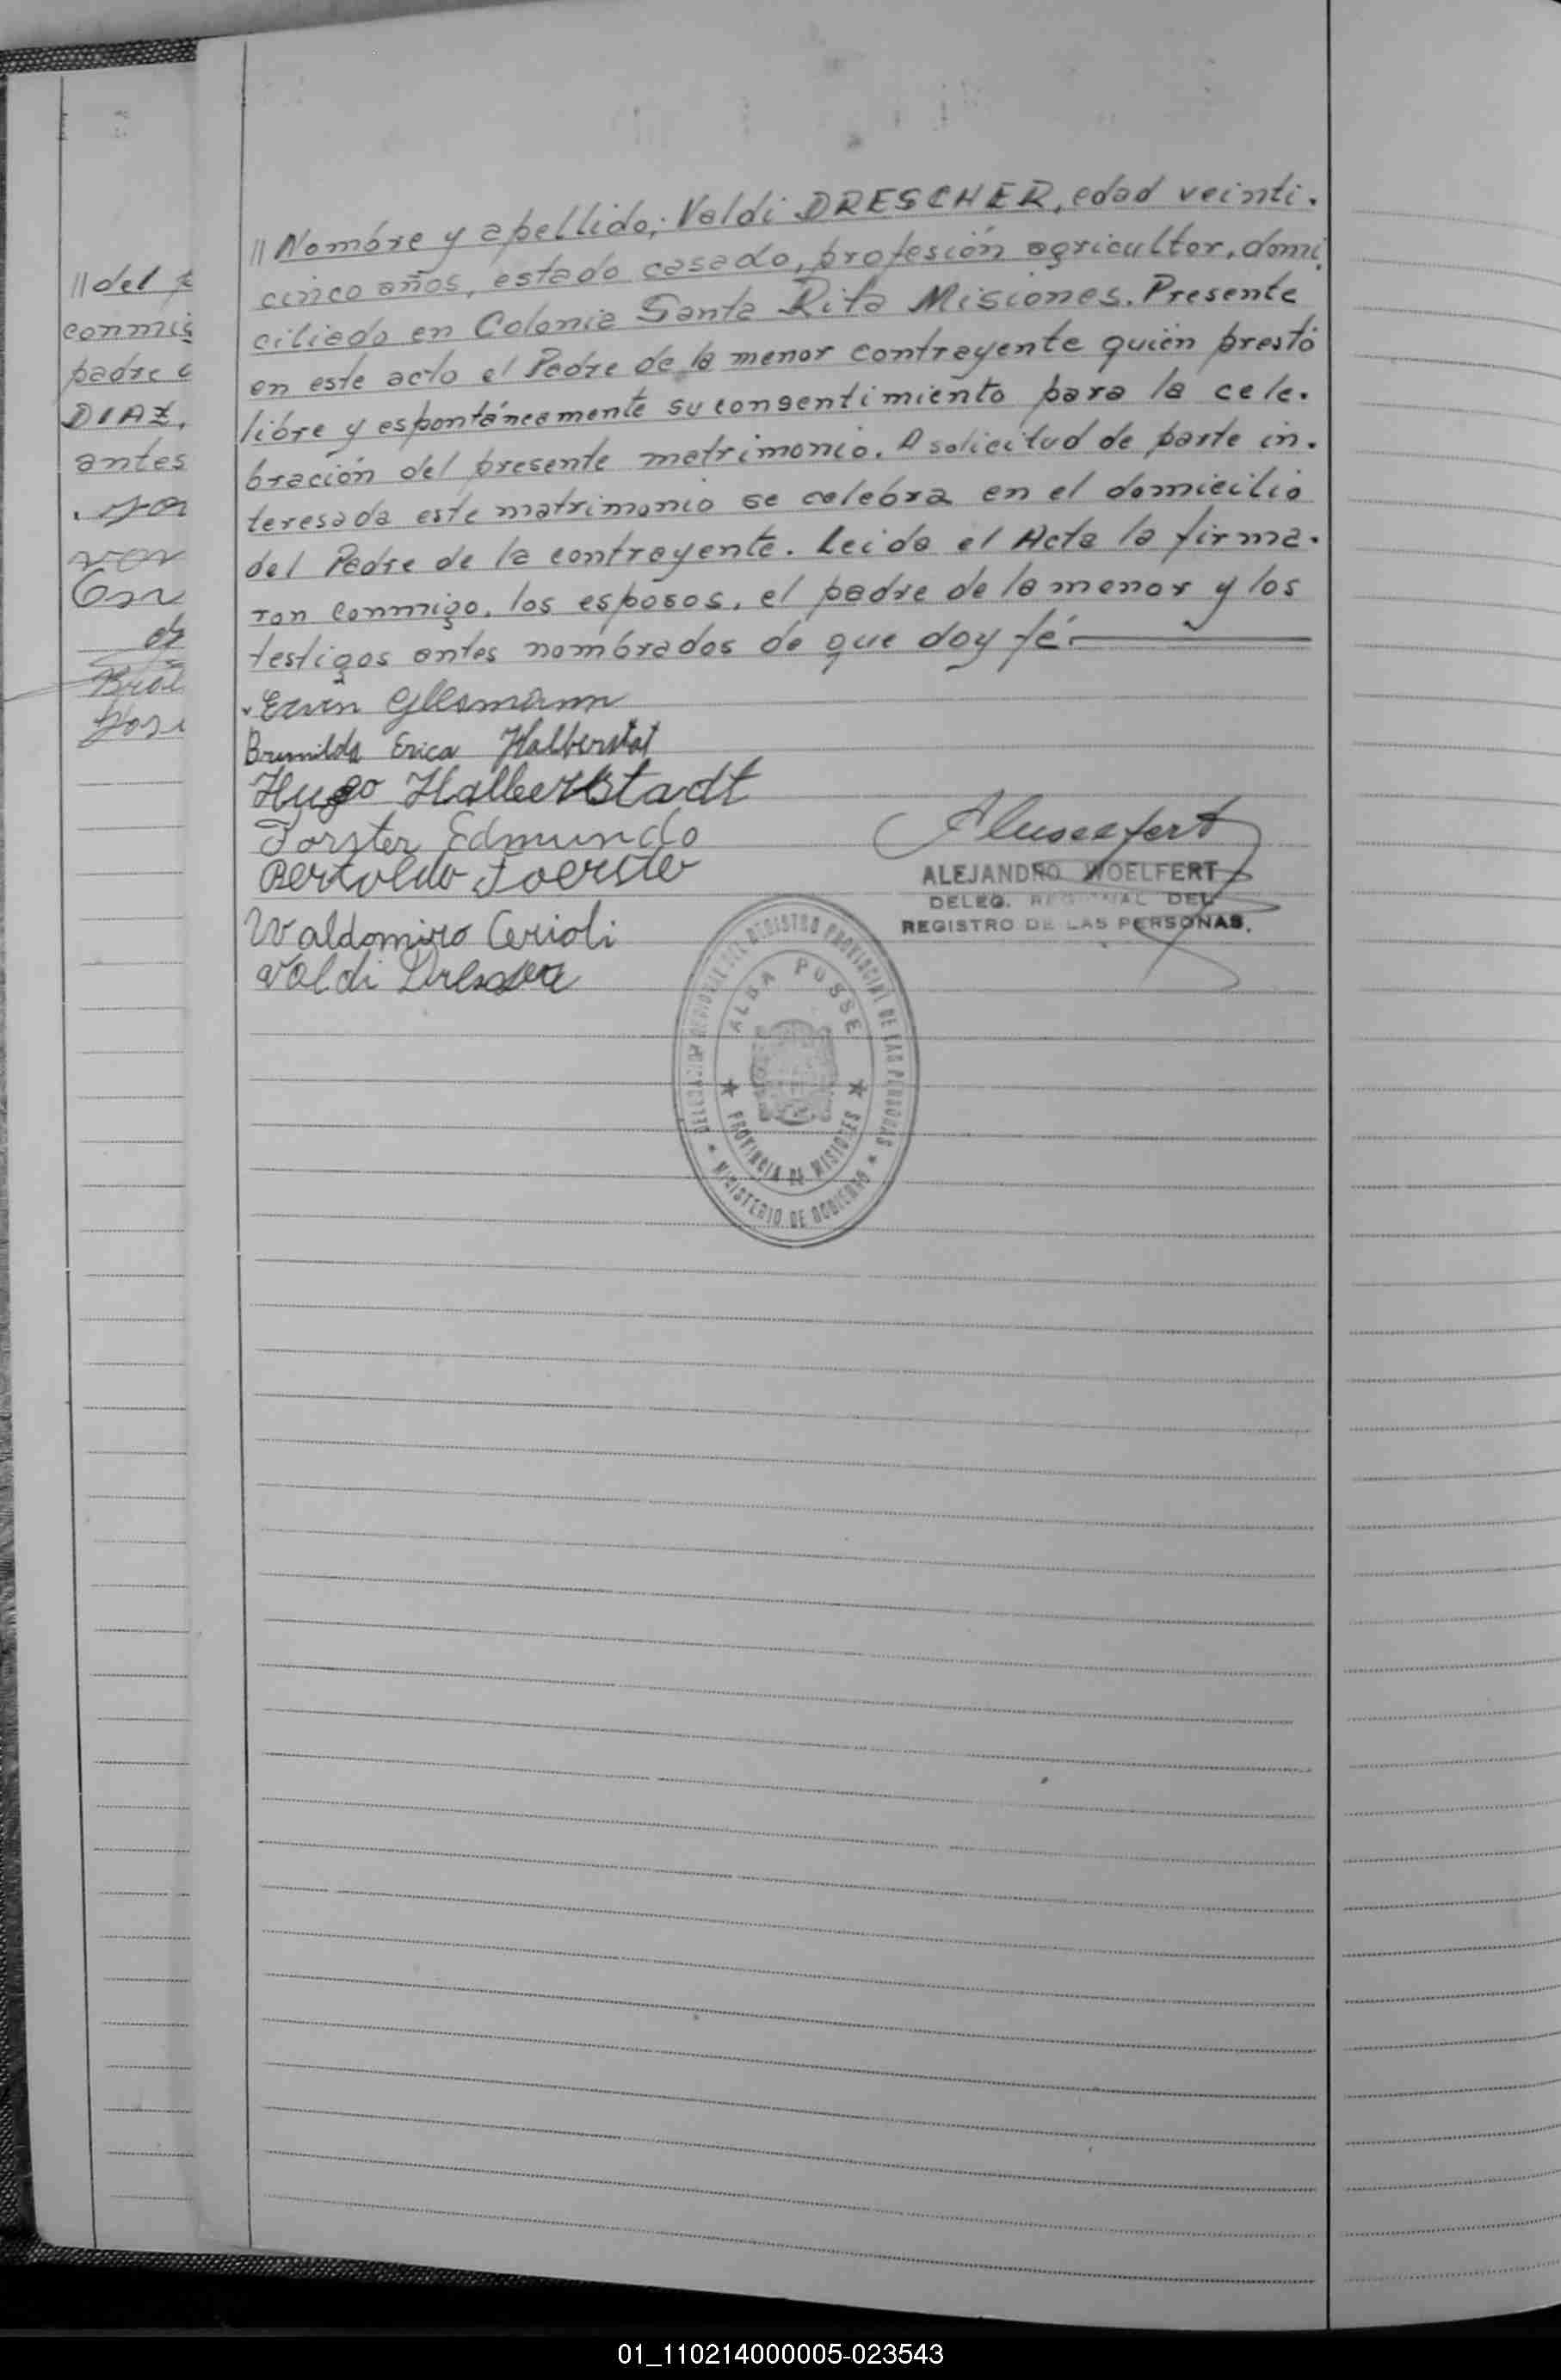 // del
conmig
padre
DIAZ,
antes
// Nombre y apellido; Valdi DRESCHER, edad veinti-
cinco años, estado casado, profesión agricultor, domi-
ciliado en Colonia Santa Rita Misiones. Presente
en este acto el Padre de la menor contrayente quién prestó
libre y espontáneamente su consentimiento para la cele-
bración del presente matrimonio. A solicitud de parte in-
teresada este matrimonio se celebra en el domicilio
del Padre de la contrayente. Leida el Acta la firma-
ron conmigo, los esposos, el padre de la menor y los
testigos antes nombrados de que doy fé.
Ervin Glesmann
Brunilda Erica Halberstat
Hugo Halberstadt
Forster Edmundo
Bertoldo Foerster
Waldomiro Cerioli
Valdi Drescher
ALEJANDRO WOELFERT
DELEG. REGIONAL DEL
REGISTRO DE LAS PERSONAS.
DELEGACION REGIONAL DEL REGISTRO PROVINCIAL DE LAS PERSONAS
MINISTERIO DE GOBIERNO
ALBA POSSE
PROVINCIA DE MISIONES
01_110214000005-023543